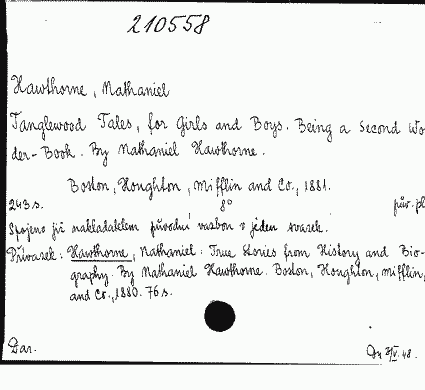 210558
Hawthorne, Nathaniel
Tanglewood Tales, for Girls and Boys. Being a Second Wo
der-Book. By Nathaniel Hawthorne.
Boston, Houghton, Mifflin and Co., 1881.
243 s. 8° pův. pl
Spojeno již nakladatelem původní vazbou v jeden svazek.
Přívazek: Hawthorne, Nathaniel: True Stories from History and Bio-
graphy. By Nathaniel Hawthorne. Boston, Houghton, Mifflin,
and Co., 1880. 76 s.
Dar. 48.